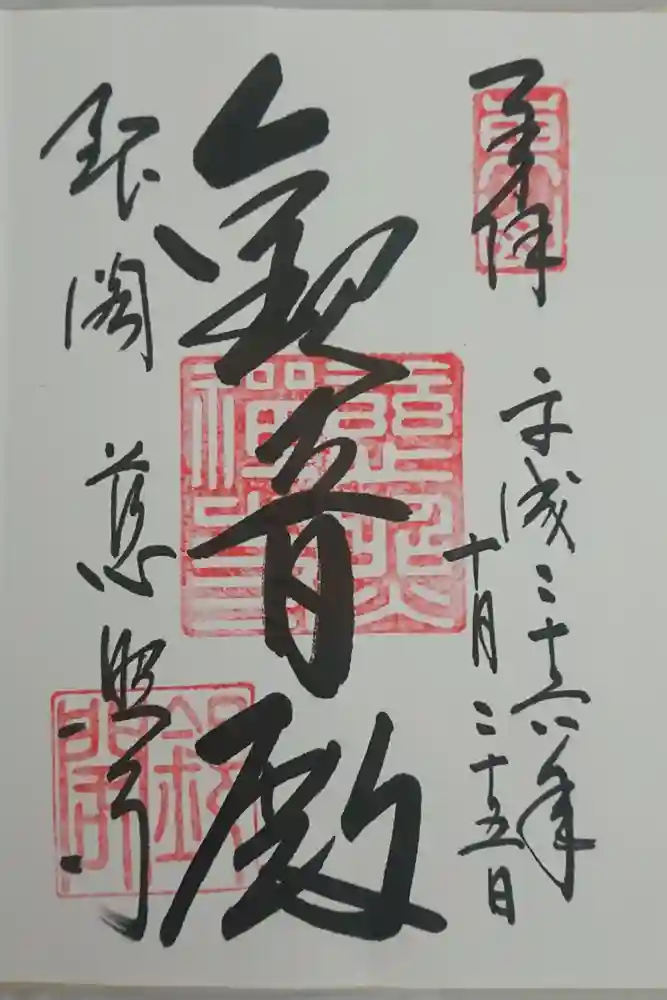 奉拝
平成二十六年
十月二十五日
観音殿
銀閣 慈照寺
慈照禅寺
銀閣